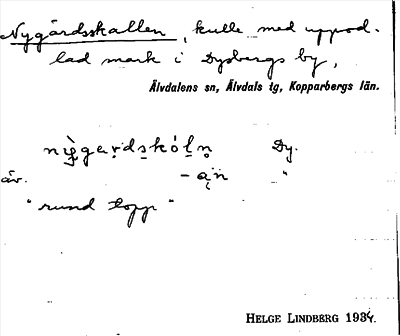 Nygårdsskallen, kulle med uppod-
lad mark i Dysbergs by,
Älvdalens sn, Älvdals tg, Kopparbergs län.
Dy.
äv. -ạn "
"rund topp"
HELGE LINDBERG 1934.